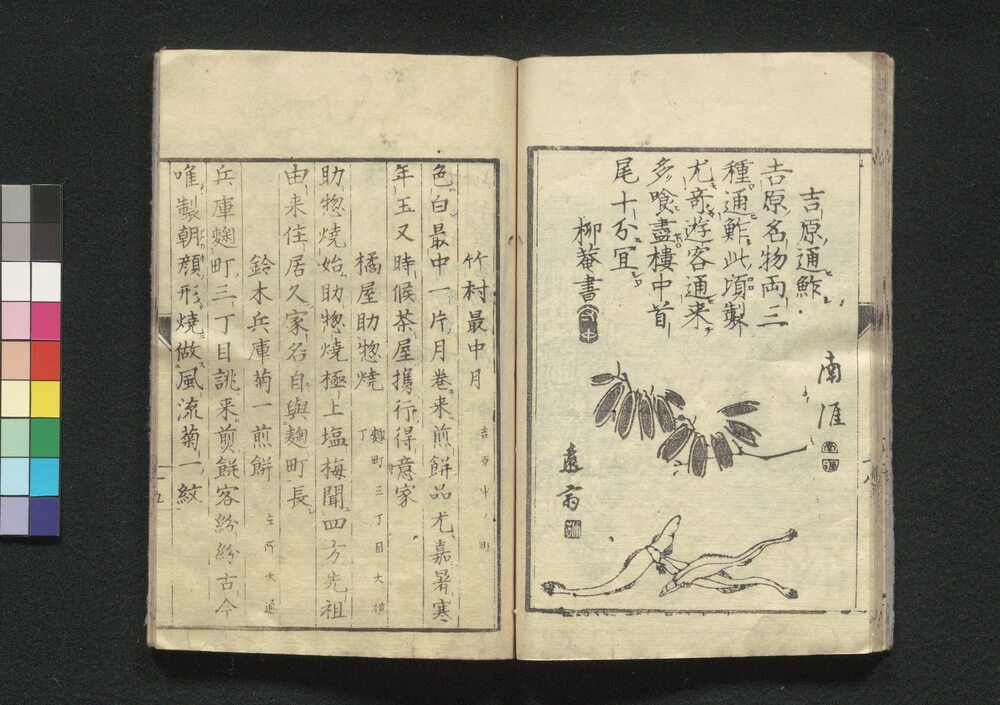 吉原通鮓
吉原名物両三
種通鮓此頃製
尤奇遊客通来
多喰盡樓中首
尾十分冝
柳菴書
南涯
遠斎
竹村最中月 吉原中ノ町
色白最中一片月巻来煎餅品尤嘉暑寒
年玉又時候茶屋携行得意家
橘屋助惣焼 麹町三丁目大横丁
助惣焼始助惣焼極上塩梅聞四方先祖
由来住居久家名自與麹町長
鈴木兵庫菊一煎餅 仝所大通
兵庫麹町三丁目誂来煎餅客紛紛古今
唯製朝顔形焼做風流菊一紋